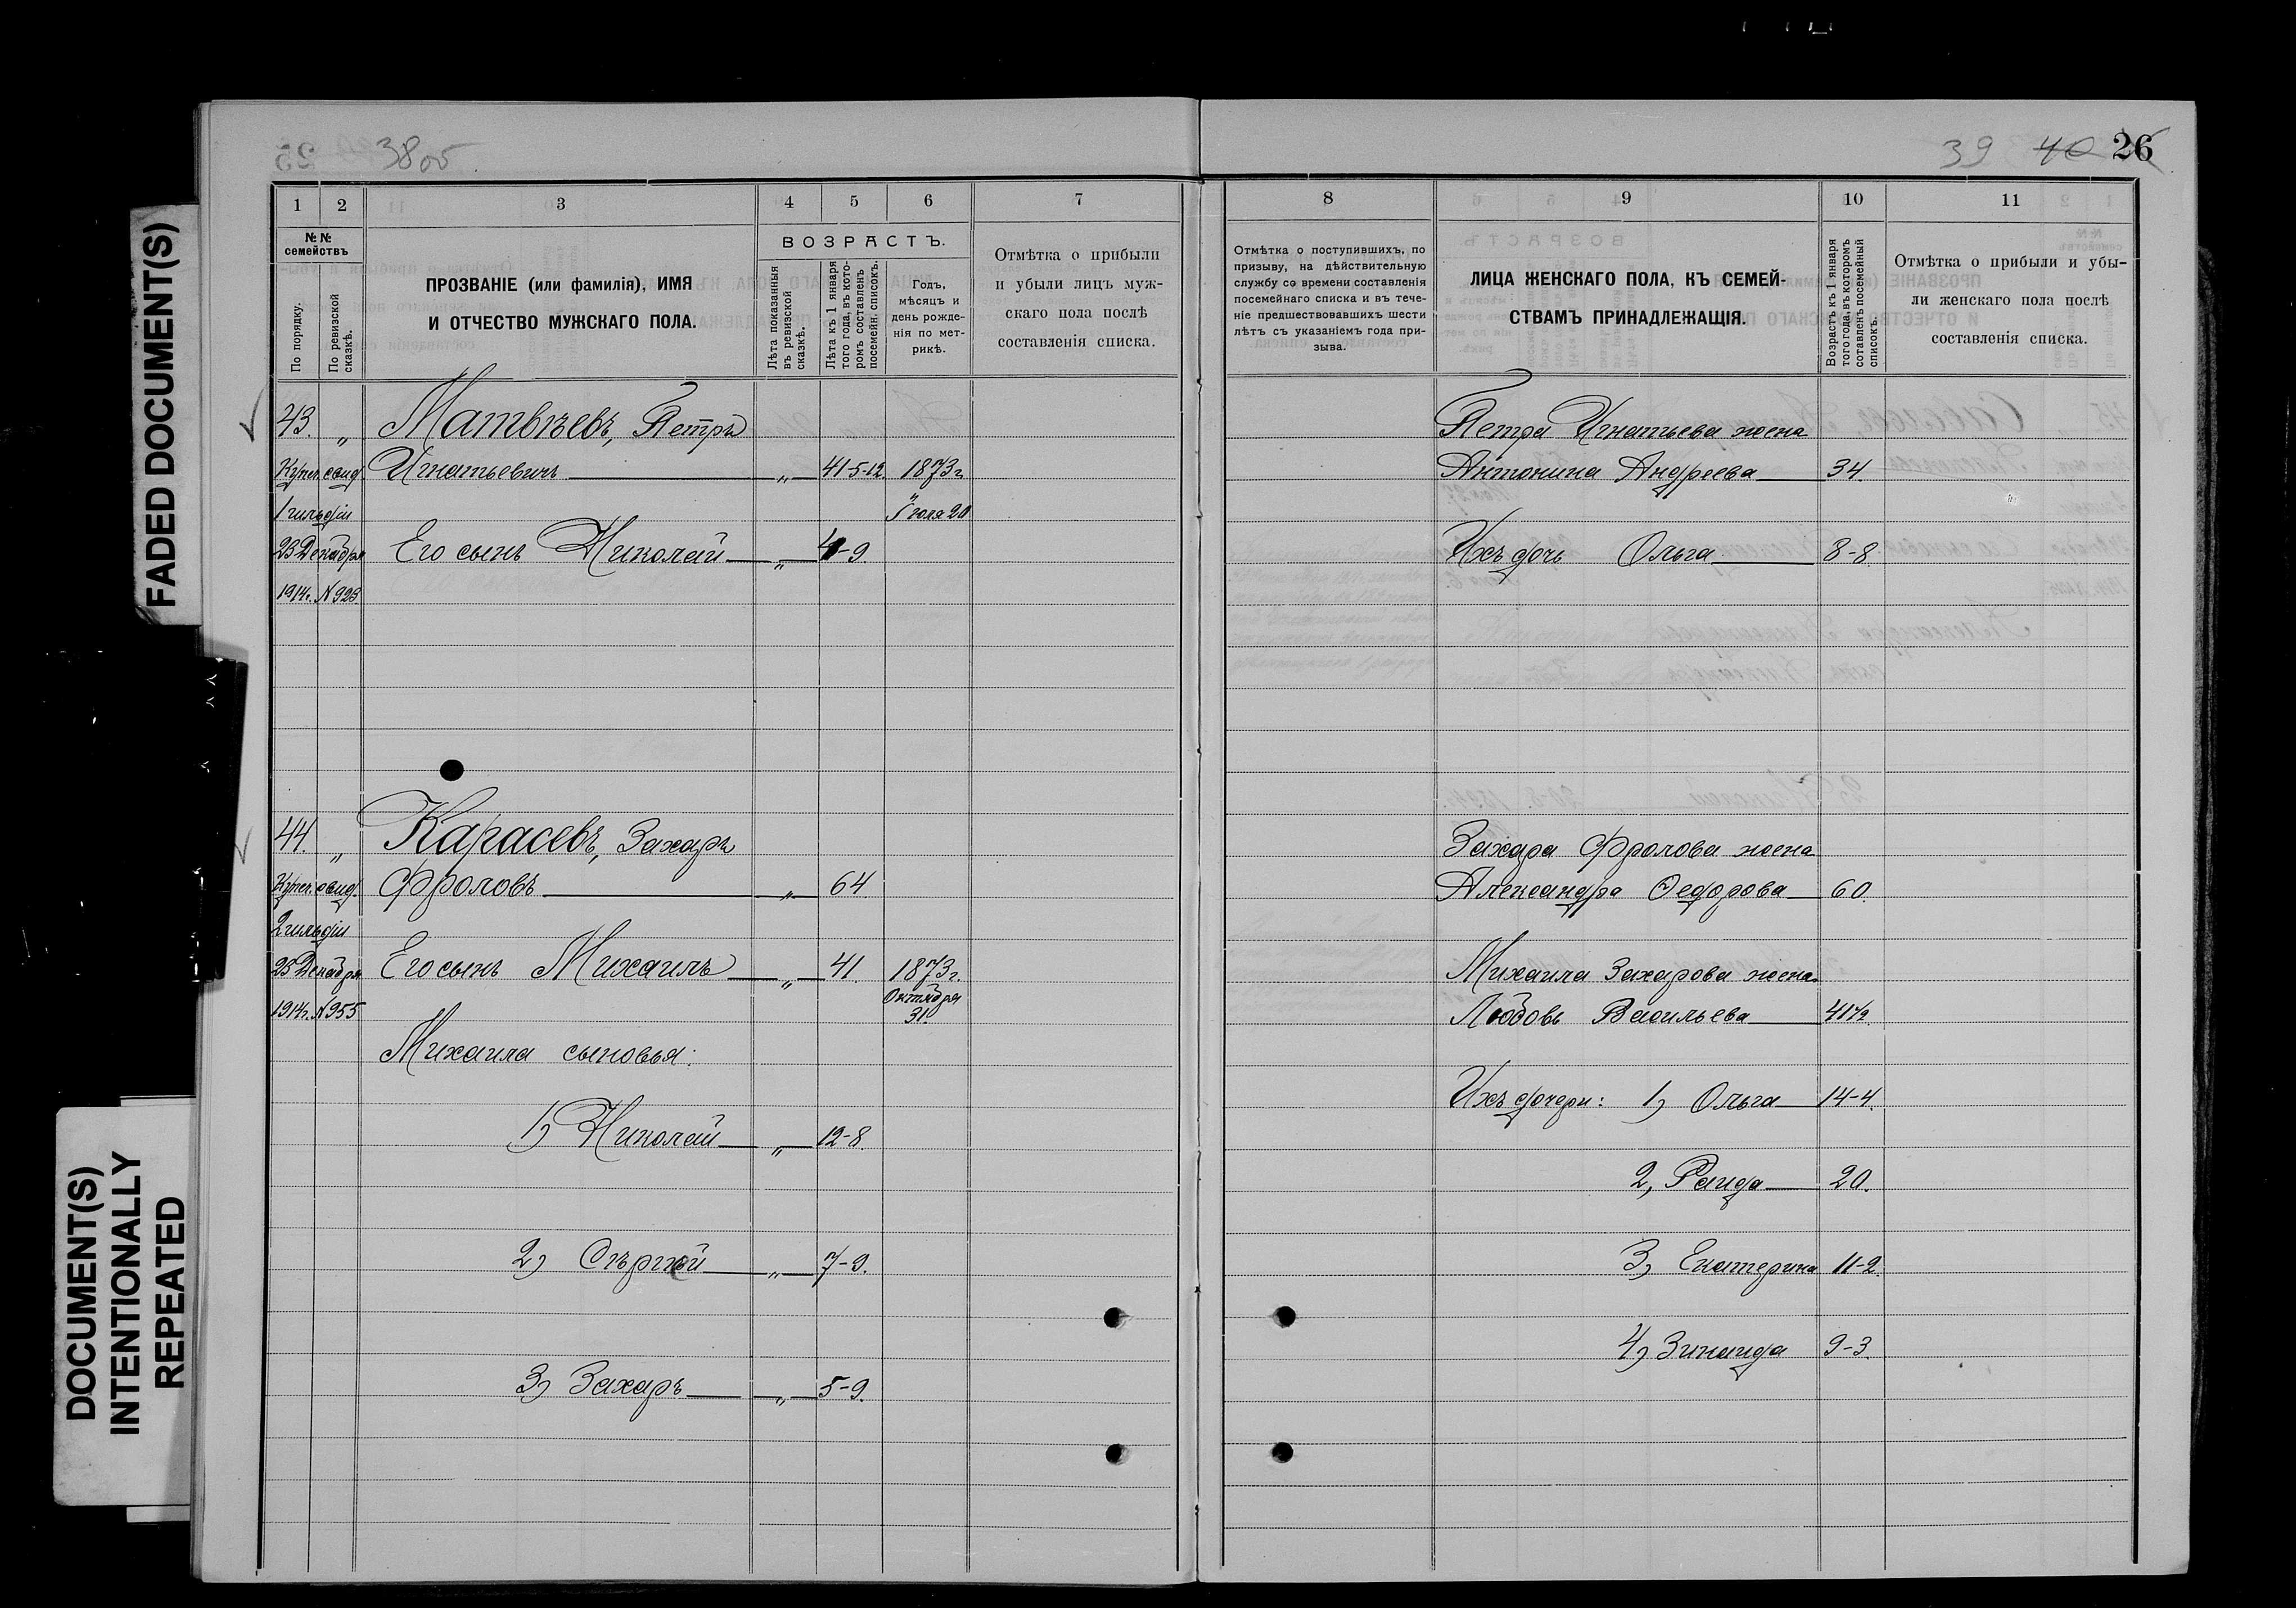 FADED DOCUMENT(S)
DOCUMENT(S)
INTENTIONALLY
REPEATED
38об.
1 2 3 4 5 6 7
№ № семействъ
По порядку.
По ревизской сказкѣ.
ПРОЗВАНІЕ (или фамилія), ИМЯ
И ОТЧЕСТВО МУЖСКАГО ПОЛА.
ВОЗРАСТЪ.
Лѣта показанныя
въ ревизской
сказкѣ.
Лѣта къ 1 января
того года, въ кото-
ромъ составленъ
посемейн. списокъ.
Годъ,
мѣсяцъ и
день рожде-
нія по мет-
рикѣ.
Отмѣтка о прибыли
и убыли лицъ муж-
скаго пола послѣ
составленія списка.
43. " Матвѣевъ, Петръ
Купеч. свид. Игнатьевичъ " 41-5-12. 1873 г.
1 гильдіи Іюля 20
23 Декабря Его сынъ Николай " 4-9.
1914г. N 923
44. " Карасевъ, Захаръ
Купеч. свид. Фроловъ " 64.
2 гильдіи
23 Декабря Его сынъ Михаилъ " 41. 1873 г.
Октября
1914г. N 955 31.
Михаила сыновья:
1) Николай " 12-8.
2) Сергѣй " 7-9.
3) Захаръ " 5-9.
39 40 26
8 9 10 11
Отмѣтка о поступившихъ, по
призыву, на дѣйствительную
службу со времени составленія
посемейнаго списка и въ тече-
ніе предшествовавшихъ шести
лѣтъ съ указаніемъ года при-
зыва.
ЛИЦА ЖЕНСКАГО ПОЛА, КЪ СЕМЕЙ-
СТВАМЪ ПРИНАДЛЕЖАЩІЯ.
Возрастъ къ 1 января
того года, въ которомъ
соtавленъ посемейный
списокъ.
Отмѣтка о прибыли и убы-
ли женскаго пола послѣ
составленія списка.
Петра Игнатьева жена
Антонина Андреева 34.
Ихъ дочь Ольга 8-8.
Захара Фролова жена
Александра Ѳедорова 60.
Михаила Захарова жена
Любовь Васильева 41½
Ихъ дочери: 1) Ольга 14-4.
2, Раида 20.
3, Екатерина 11-2.
4) Зинаида 9-3.